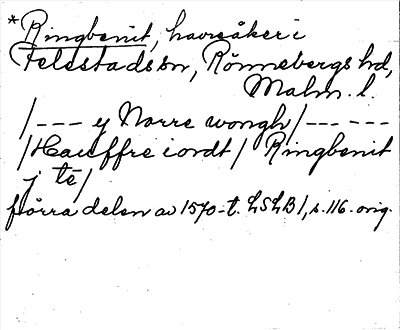 *Ringbenit, havreåker i
Felestads sn, Rönnebergs hd,
Malm. l.
/--- y Norre wongh/------
/Hauffre iordt/ Ringbenit
j tē/
förra delen av 1570-t. LSLB1, s. 116. orig.